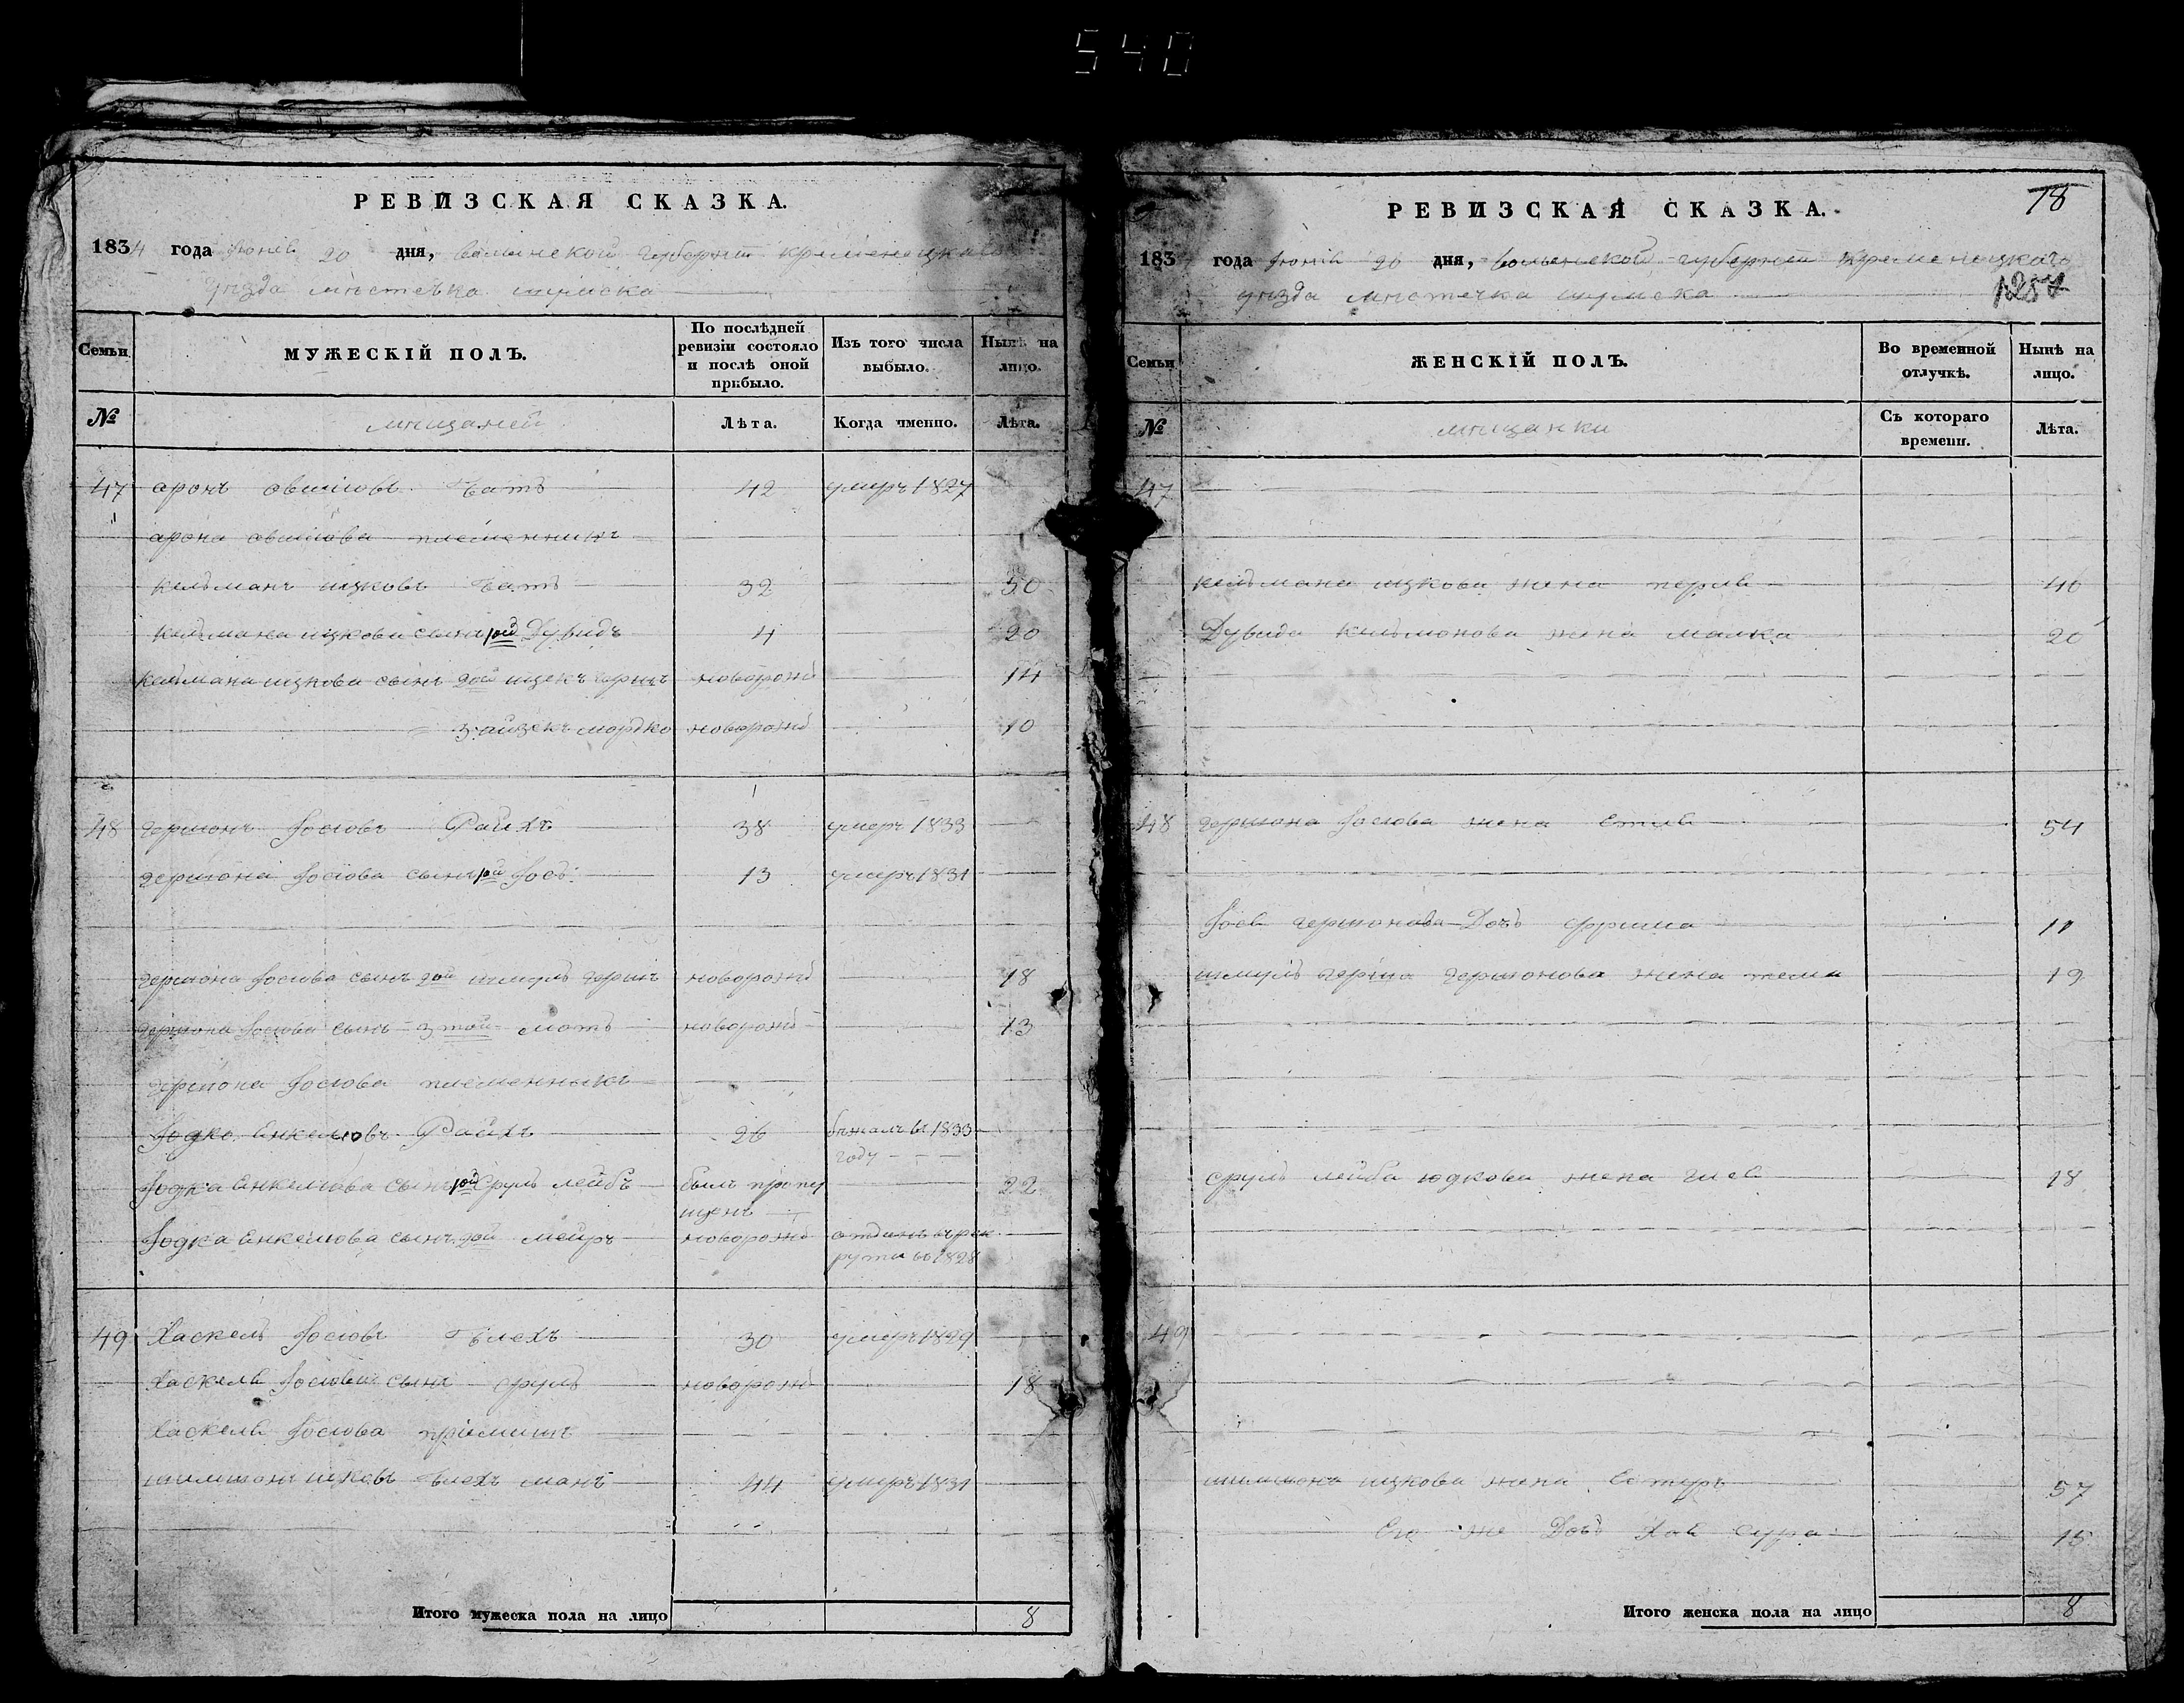 540
РЕВИЗСКАЯ СКАЗКА.
1834 года Іюня 20 дня, волынской губерніи кременецкаго
уизда мистечка шумска
Семьи
МУЖЕСКІЙ ПОЛЪ.
По послѣдней ревизіи состояло и послѣ оной прибыло.
Изъ того числа выбыло.
Нынѣ на лицо.
№
мищаней
Лѣта.
Когда именно.
Лѣта.
47 аронъ овшіовъ Батъ 42 умеръ 1827
арона овшіова племенникъ
кельманъ ицковъ Батъ 32 50
кельмана ицкова сынъ 1ой Дувидъ 4 20
кельмана ицкова сынъ 2ой ицекъ гершъ новорожд 14
3 айзекъ мордко новорожд 10
48 гершонъ Іосіовъ Райхъ 38 умеръ 1833
гершона Іосіова сынъ 1ой Іосъ 13 умеръ 1831
гершона Іосіова сынъ 2ой шмуль гершъ новорожд 18
гершона Іосіова сынъ 3той мотъ новорожд 13
гершона Іосіова племенникъ
Іодко Енкелювъ Райхъ 26 бежалъ въ 1833
году
Іодка Енкелюва сынъ 1ой сруль лейбъ былъ пропу 22
щенъ
Іодка Енкелюва сынъ 2ой меиръ новорожд отданъ в рек
руты въ 1828
49 Хаскель Іосіовъ Блехъ 30 умеръ 1829
Хаскеля Іосіова сынъ сруль новорожд 18
Хаскеля Іосіова пріемишъ
шимшонъ ицковъ Блехъ манъ 44 умеръ 1831
Итого мужеска пола на лицо 8
78
РЕВИЗСКАЯ СКАЗКА.
183 года Іюня 20 дня, волынской губерніи кременецкаго
уизда мистечка шумска
1257
Семьи
ЖЕНСКІЙ ПОЛЪ.
Во временной отлучкѣ.
Нынѣ на лицо.
№
мищанки
Съ котораго времени.
Лѣта.
47
кельмана ицкова жена перля 40
Дувида кельмонова жена малка 20
48 гершона Іосіова жена Етля 54
Іося гершонова Дочь фрима 11
шмуль герша гершонова жена темa 19
сруль лейба юдкова жена гися 18
49
шимшона ицкова жена Естуръ 57
Его же Дочь Хая сура 15
Итого женска пола на лицо 8